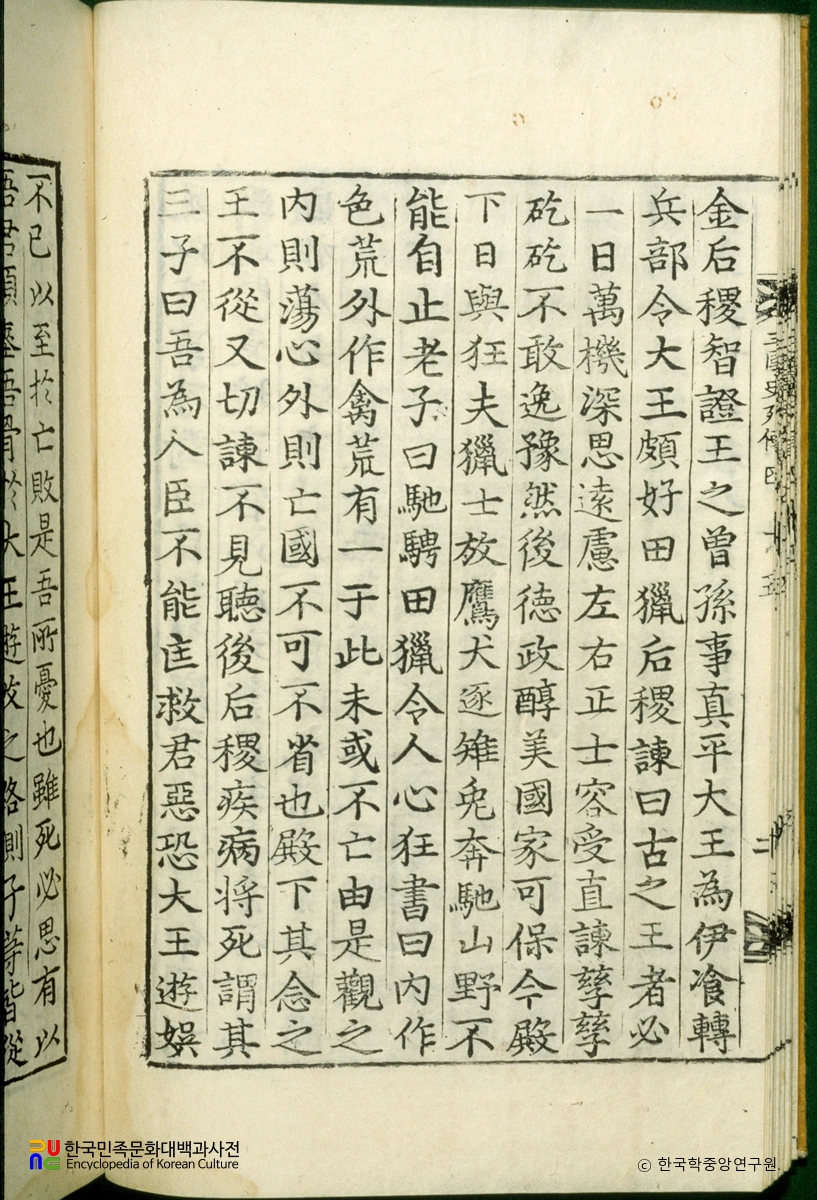 金后稷智證王之曾孫事真平大王為伊飡轉
兵部令大王頗好田獵后稷諫曰古之王者必
一日萬機深思遠慮左右正士容受直諫孳孳
矻矻不敢逸豫然後德政醇美國家可保今殿
下日與狂夫獵士放鷹犬逐雉兎奔馳山野不
能自止老子曰馳騁田獵令人心狂書曰内作
色荒外作禽荒有一于此未或不亡由是觀之
内則蕩心外則亡國不可不省也殿下其念之
王不從又切諫不見聽後后稷疾病将死謂其
三子曰吾為人臣不能匡救君惡恐大王遊娛
不已以至於亡敗是吾所憂也雖死必思有以
吾君須瘞吾骨於大王遊畋之路側子等皆從
三國史列傳
한국민족문화대백과사전
Encyclopedia of Korean Culture
© 한국학중앙연구원